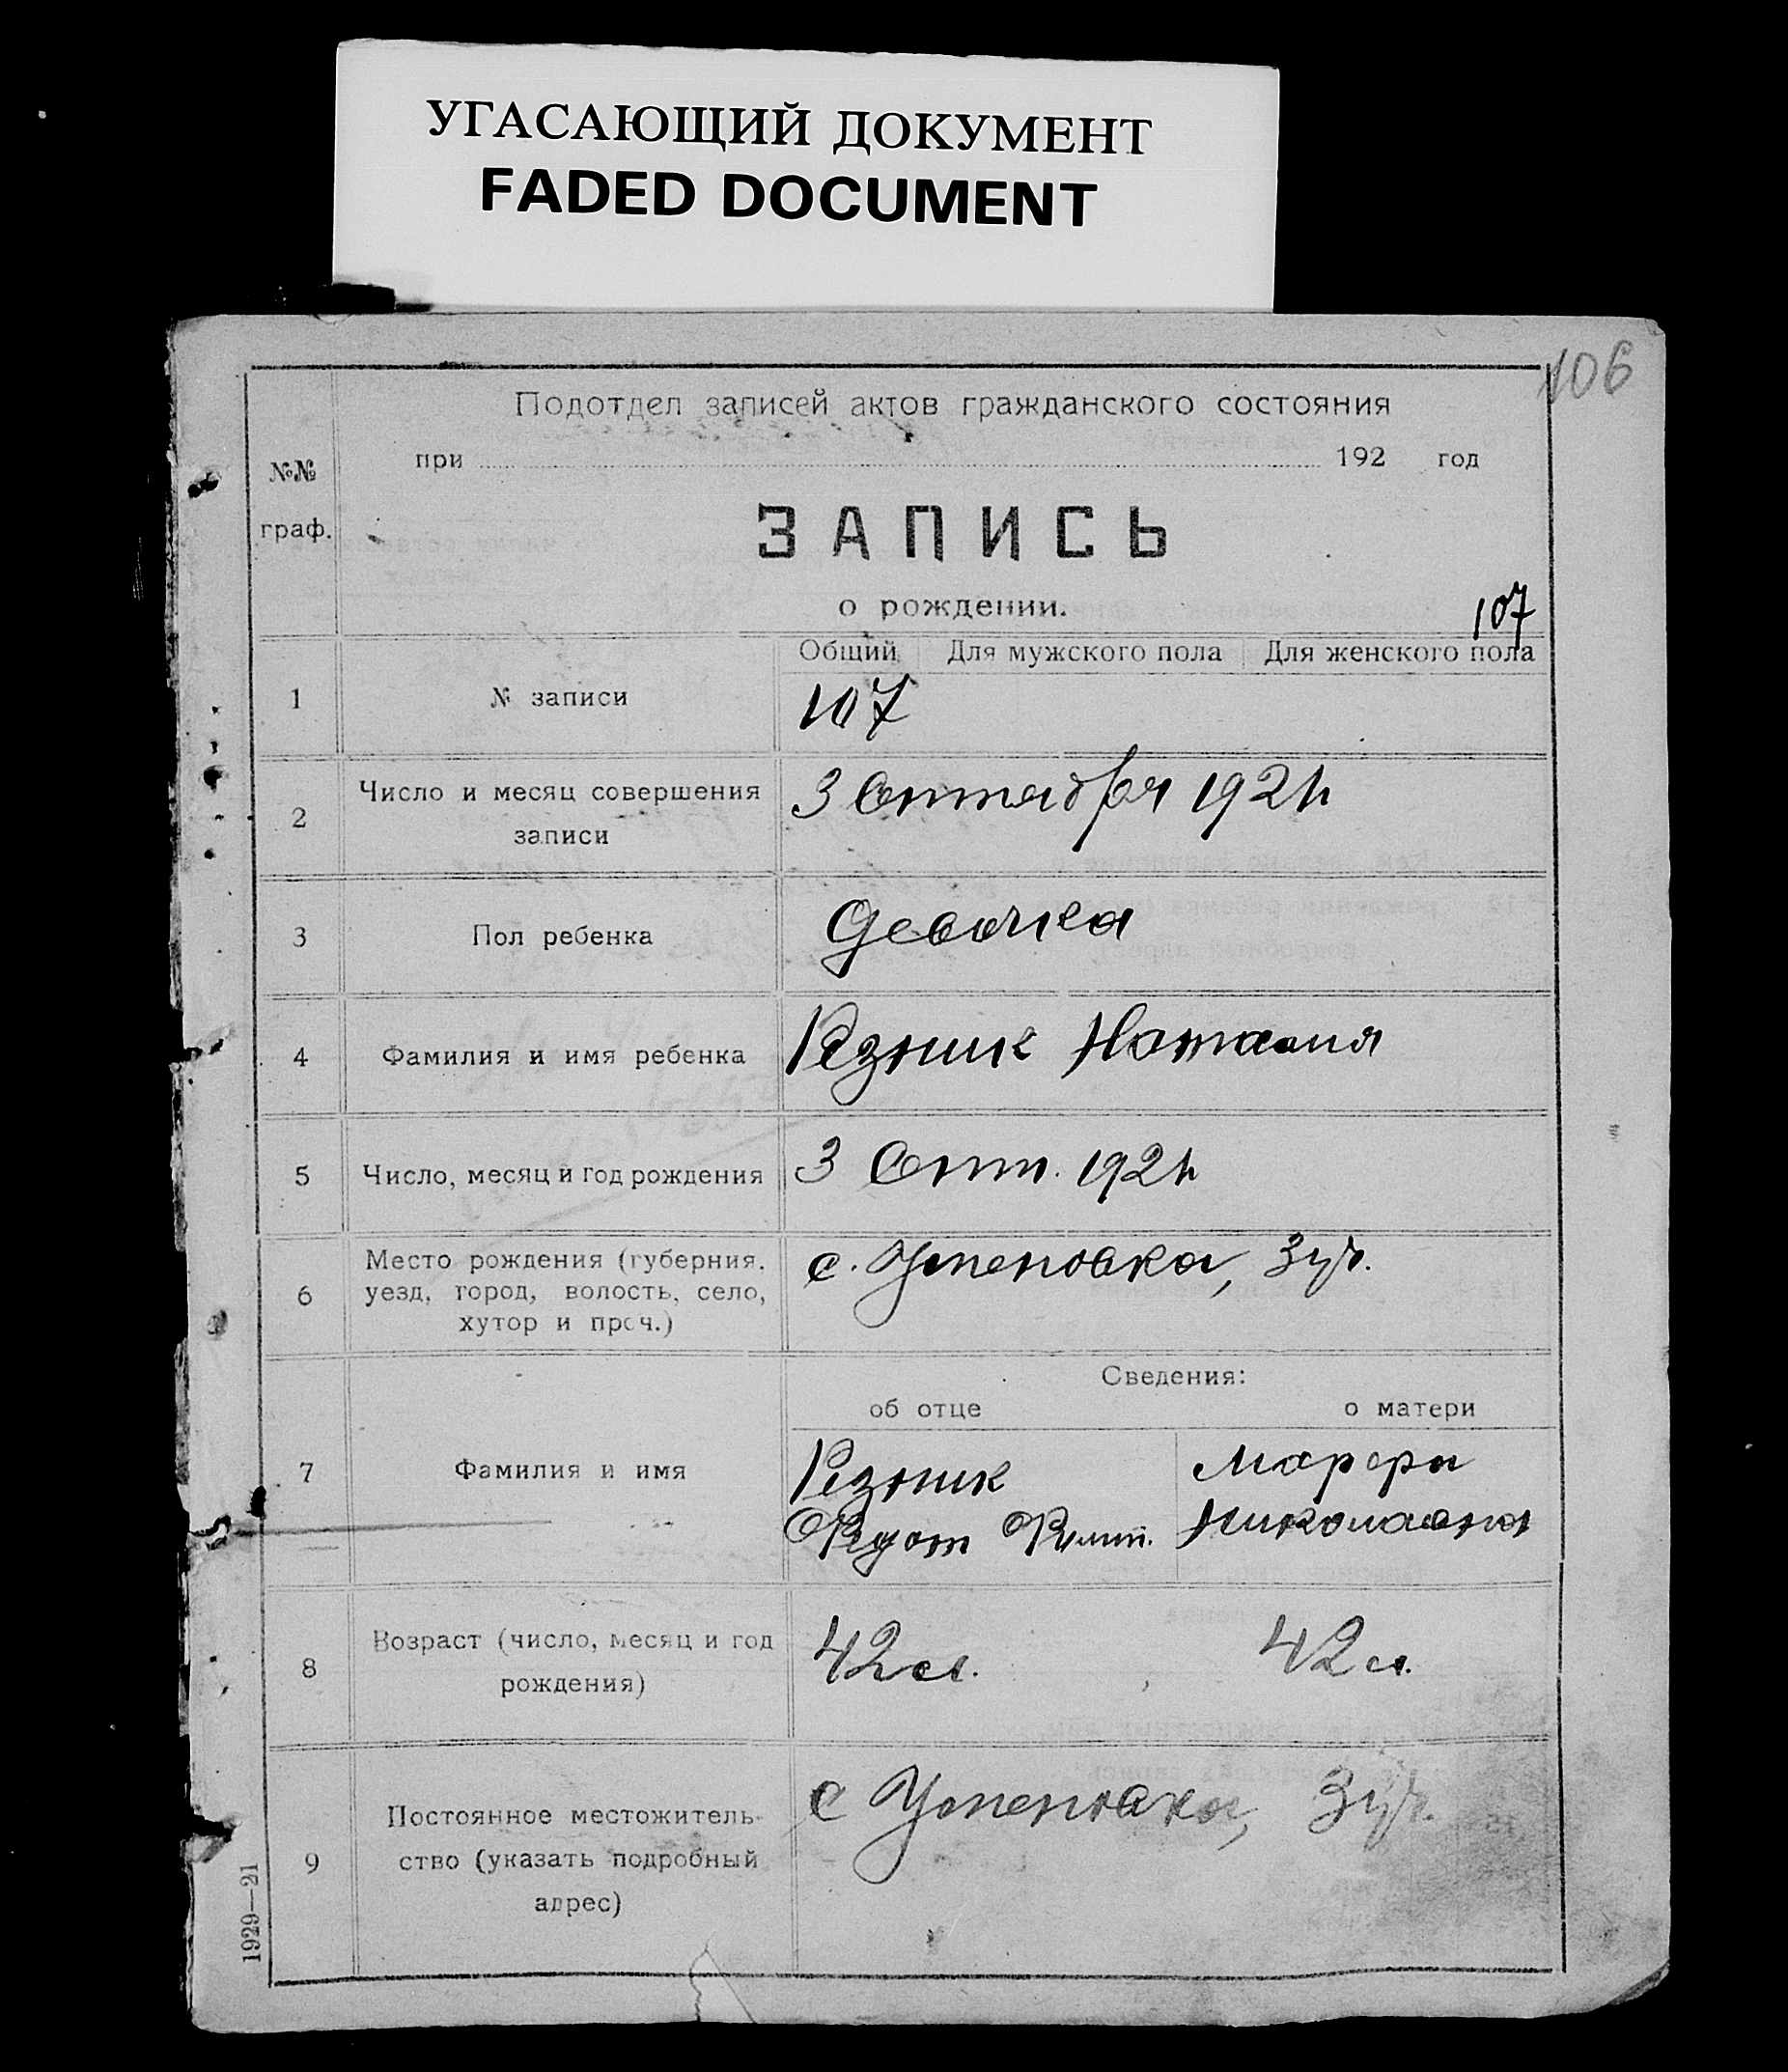 УГАСАЮЩИЙ ДОКУМЕНТ
FADED DOCUMENT
106
Подотдел записей актов гражданского состояния
№№
граф.
при 192 год
ЗАПИСЬ
о рождении.
107
Общий Для мужского пола Для женского пола
1 № записи 107
2 Число и месяц совершения записи 3 Сентября 192
3 Пол ребенка Девочка
4 Фамилия и имя ребенка Резник Наталия
5 Число, месяц и год рождения 3 Сент. 192
6 Место рождения (губерния, уезд, город, волость, село, хутор и проч.) с. Успеновка, 3 уч.
Сведения:
об отце о матери
7 Фамилия и имя Резник Марфа
Федот Филип. Николаевна
8 Возраст (число, месяц и год рождения) 42 л. 42 л.
9 Постоянное местожитель-
ство (указать подробный
адрес) с Успеновка, 3 уч.
1929—21